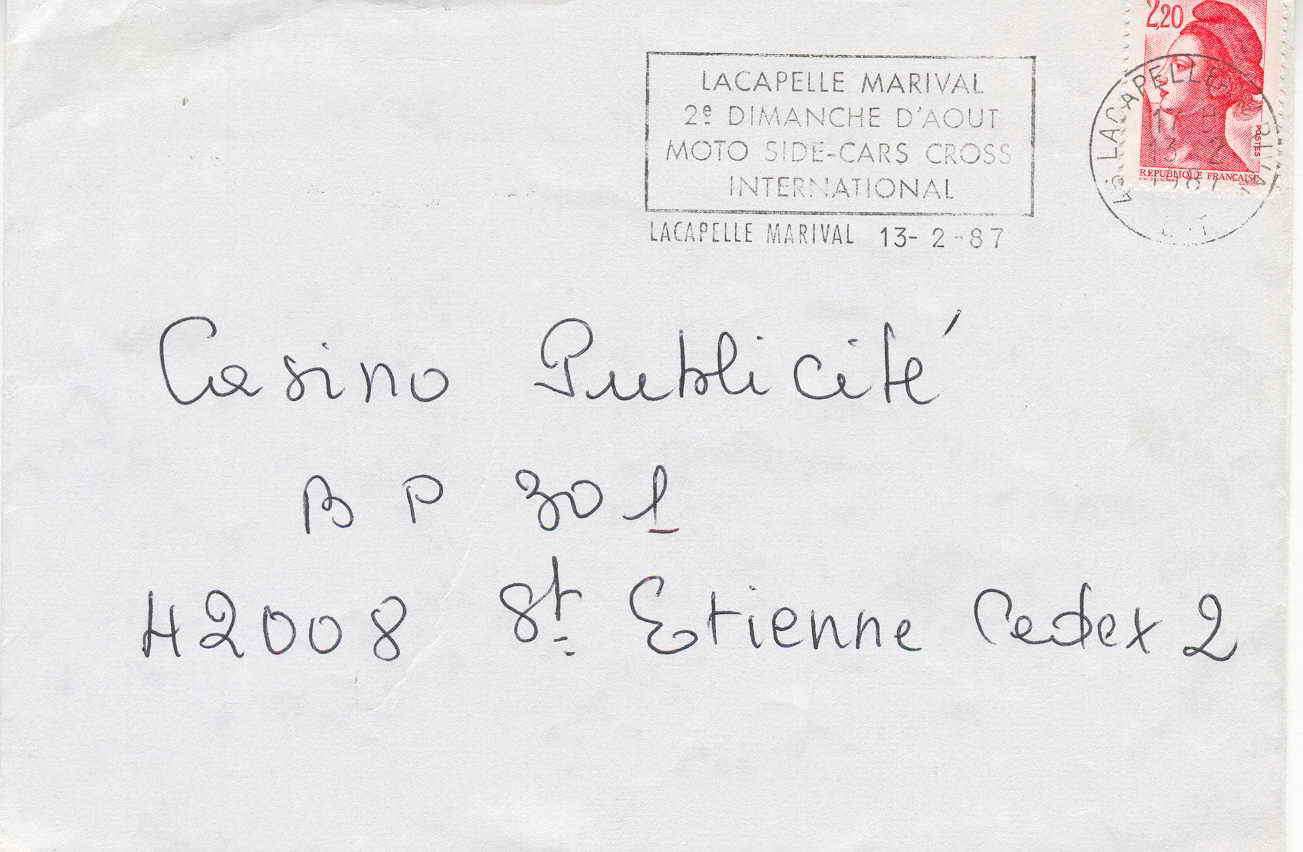 2,20
LACAPELLE MARIVAL
2e DIMANCHE D'AOUT
MOTO SIDE-CARS CROSS
INTERNATIONAL
LACAPELLE MARIVAL 13-2-87
46 LACAPELLE
13-2
1987
LOT
POSTES
REPUBLIQUE FRANÇAISE
Casino Publicité
BP 301
42008 St Etienne Cedex 2